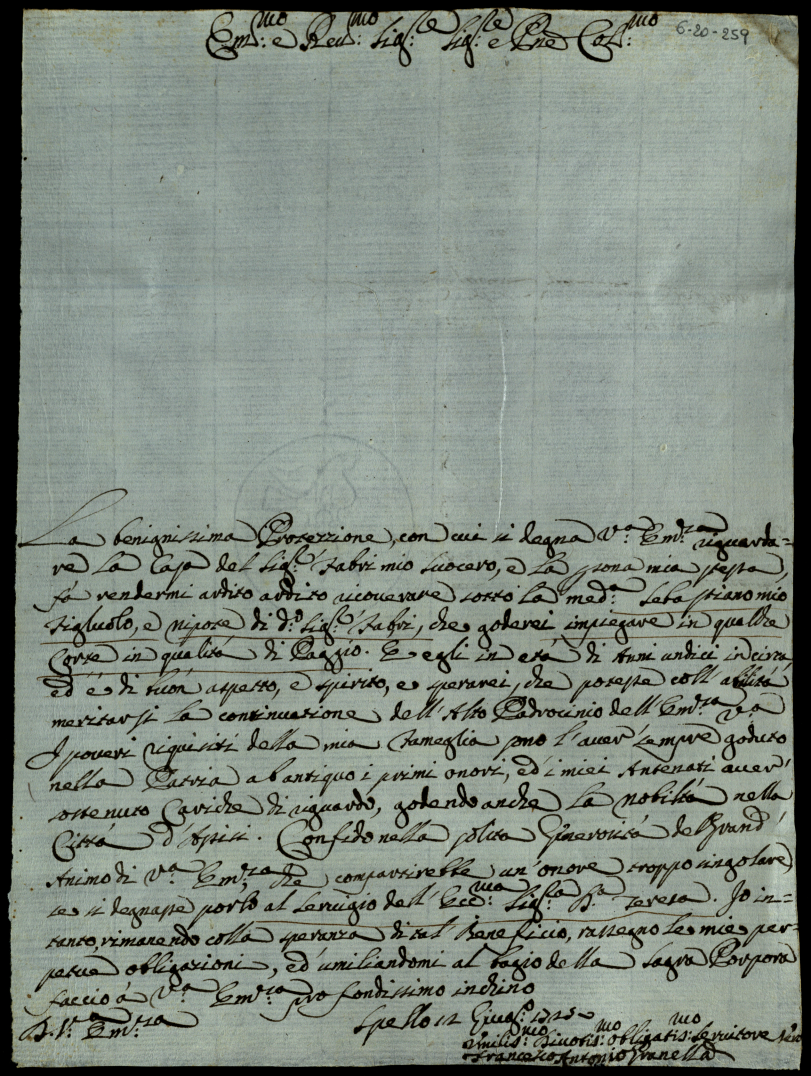 6-20-259
Em.mo e Rev.mo Sig.re Sig.re e Pne Col.mo
La benignissima Protezzione, con cui si degna V.a Em.za riguarda=
re la Casa del Sig.r Fabri mio suocero, e la persona mia stessa
fà rendermi ardito ardito ricoverare sotto la med.a Sebastiano mio
figluolo, e nipote di d.o Sig.r Fabri, che goderei impiegare in qualche
Corte in qualità di Paggio. E egli in età di Anni undici in circa
ed' è di buon aspetto, e spirito, e sperarei, che potesse coll' abilità
meritarsi la continuazione dell' Alto Padrocinio dell' Em.za V.a
I poveri riquisiti della mia Fameglia sono l'aver' sempre goduto
nella Patria ab antiquo i primi onori, ed' i miei Antenati aver'
sostenuto Cariche di riguardo, godendo anche la nobiltà nella
Città d'Assisi. Confido nella solita Generosità del Grand'
Animo di V.a Em.za, che compartirebbe un' onore troppo singolare,
se si degnasse porlo al servigio dell' Ecc.ma Sig.ra D.a Teresa. Io in=
tanto, rimanendo colla speranza di tal Beneficio, rassegno le mie per=
petue obligazioni, ed' umiliandomi al bagio della Sagra Porpora
faccio à V.a Em.za profondissimo inchino
D. V.a Em.za
Spello 12 Giug.o 1725
Umilis.mo Divotis.mo Obligatis.mo Servitore vero
Francesco Antonio Granella